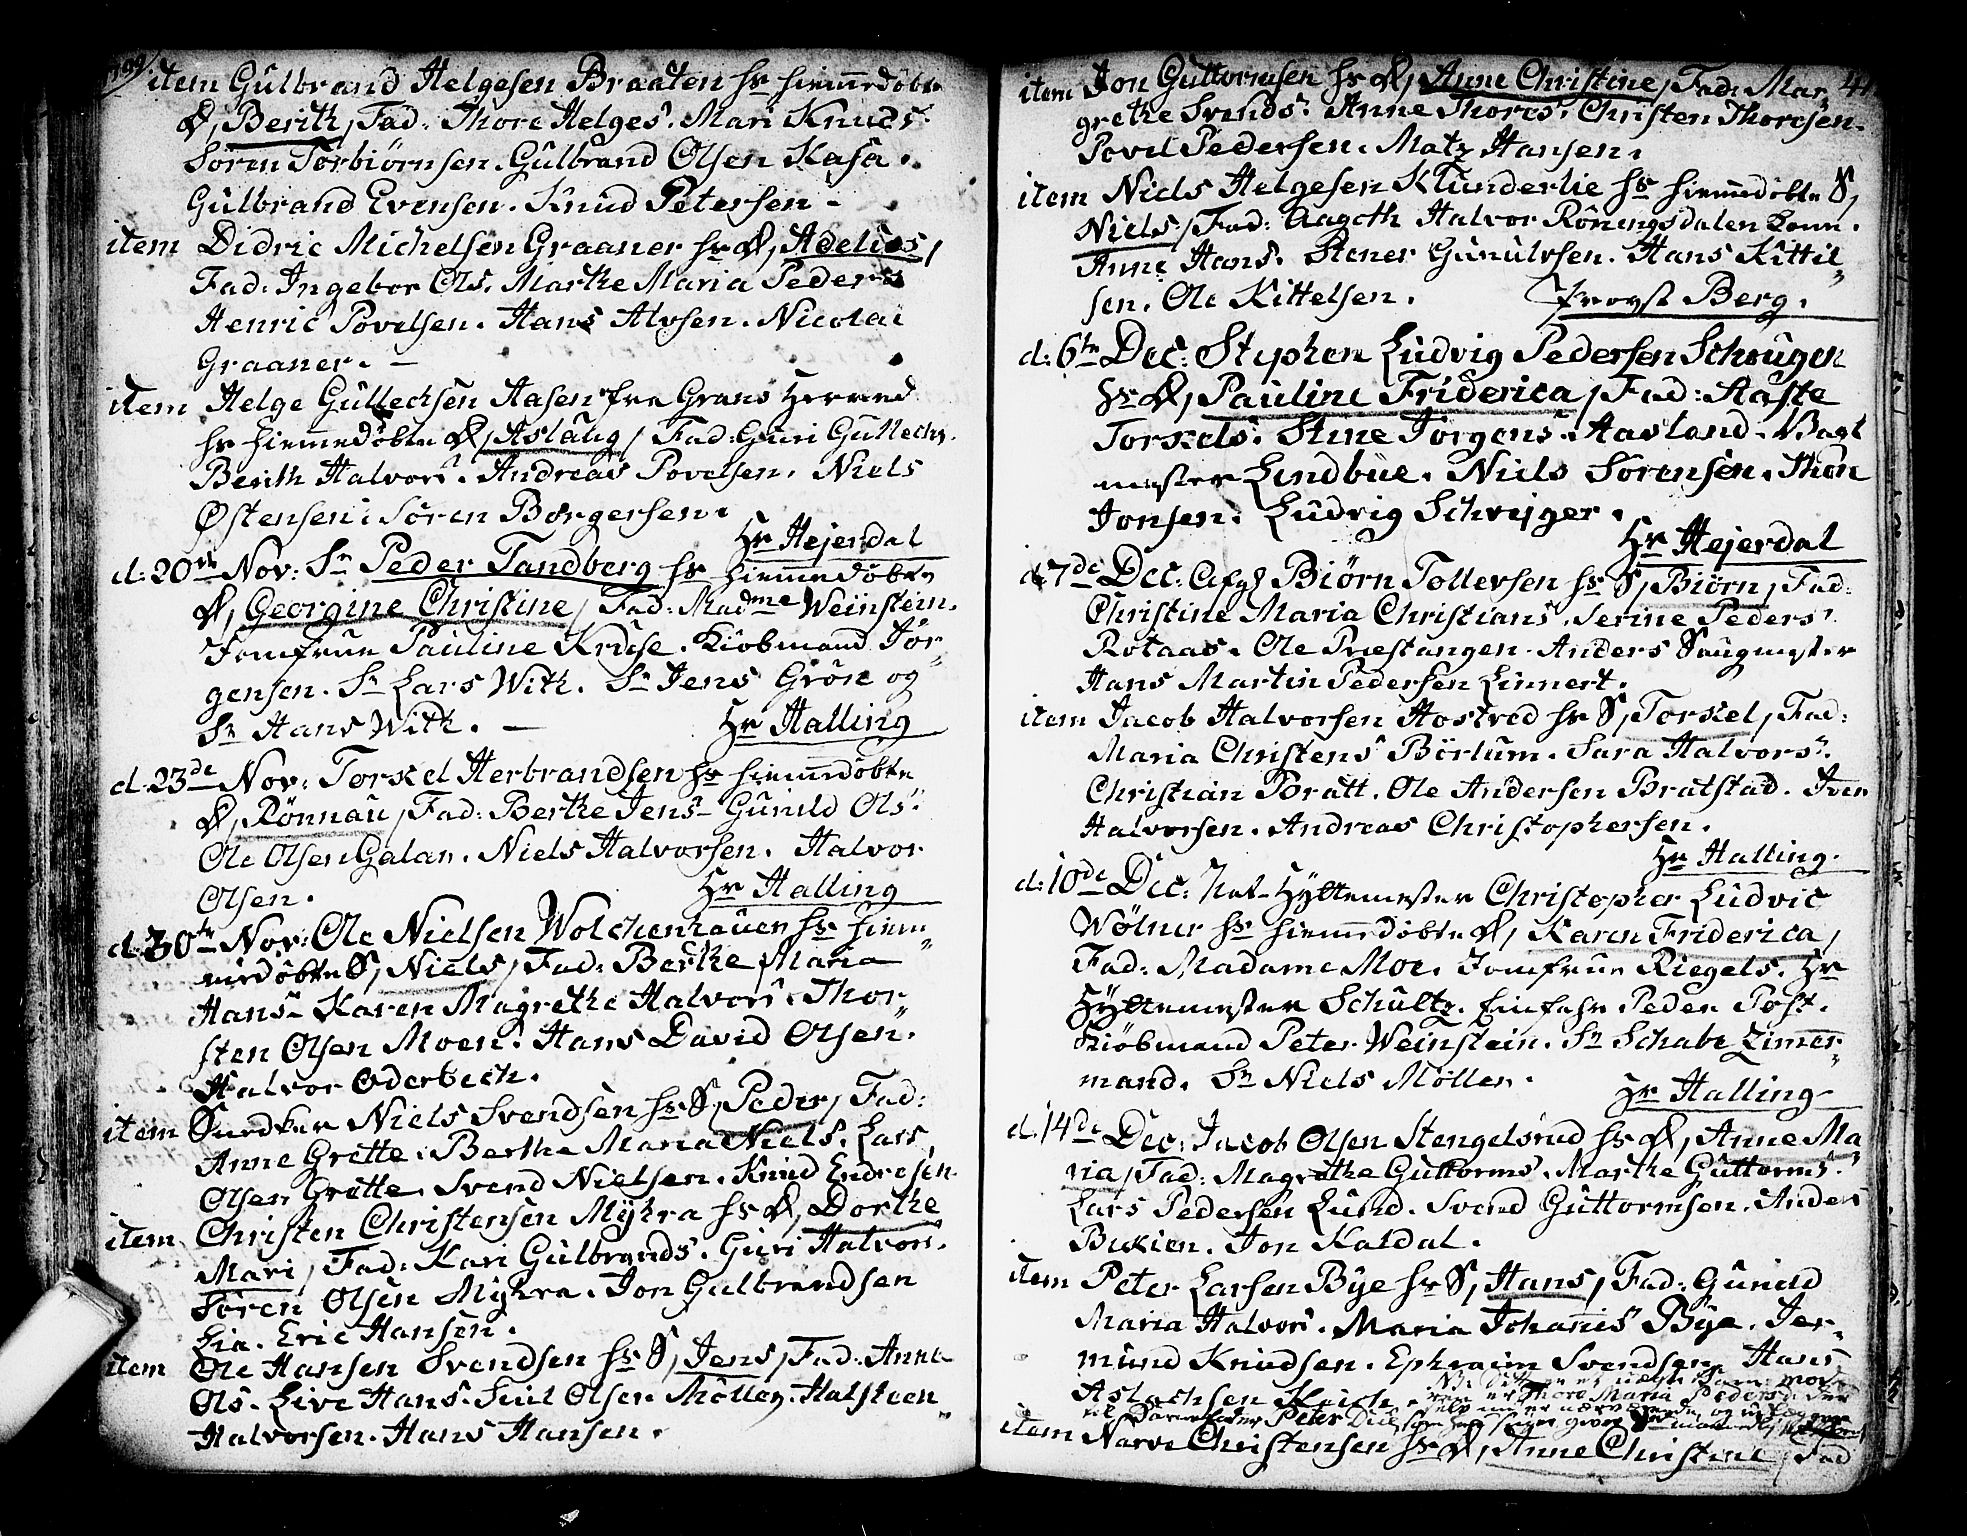 item Gulbrand Helgesen Braaten hr hiemmedøbte
D, Berith, Fad: Thore Helges. Mari Knuds.
Sören Torbiörnsen. Gulbrand Olsen Kasa.
Gulbrand Evensen. Knud Petersen -
item Didric Michelsen Graaner hr D, Adelus,
Fad: Ingebor Ols. Marthe Maria Peders
Henric Povelsen. Hans Alvsen. Nicolai
Graaner. -
item Helge Gullechsen Aasen fra Grans Herred
hr hiemmedøbte D, Aslaug, Fad: Guri Gullechs.
Berith Halvors. Andreas Povelsen. Niels
Østensen. Sören Borgersen.
Hr Hejerdal
d: 20de Nov: Sr Peder Tandberg hr hiemmedøbte
D, Georgine Christine, Fad: Madme Weinstein.
Jomfrue Pauline Kruse. Kiøbmand Jør-
gensen. Sr Lars With. Sr Jens Grön og
Sr Hans With. -
Hr Halling
d. 23de Nov: Torkel Herbrandsen hr hiemmedøbte
D, Rönnau, Fad: Berthe Jens- Gunild Ols.
Ole Olsen Galan. Niels Halvorsen. Halvor
Olsen.
Hr Halling
d. 30te Nov: Ole Nielsen Wolchenhauer hr hiem-
medøbte S, Niels, Fad: Berthe Maria
Hans- Karen Magrethe Halvors. Thor-
sten Olsen Moen. Hans David Olsen.
Halvor Oderbech.
item Snedker Niels Svendsen hr S, Peder, Fad:
Anne Grette. Berthe Maria Niels. Lars
Olsen Grette. Svend Nielsen. Knud Endresen
item Christen Christensen Myhra hr D, Dorthe
Mari, Fad: Kari Gulbrands. Guri Halvors.
Sören Olsen Myhra. Jon Gulbrandsen
Lia. Eric Hansen.
item Ole Hansen Svendsen hr S, Jens, Fad: Anne
Ols. Live Hans. Juil Olsen Möller. Halsteen
Halvorsen. Hans Hansen.
item Jon Guttormsen hr D, Anne Christine, Fad: Mar-
grethe Svends. Anne Thores. Christen Thoresen.
Povel Pedersen. Matz Hansen.
item Niels Helgesen Klunderlie hr hiemmedøbte S,
Niels, Fad: Aagoth Halvor Röningsdalen Kone.
Anne Hans. Stener Gunulvsen. Hans Kittil-
sen. Ole Kittelsen.
Provst Berg.
d: 6te Dec: Stephen Ludvig Pedersen Schougen
hr D, Pauline Friderica, Fad: Aaste
Torkels. Stine Jörgens. Aasland. Vagt
mester Lindbue. Niels Sörensen. Thon
Jonsen. Ludvig Schrijger.
Hr Hejerdal
d. 7de Dec: Afg Biörn Tollevsen hr S, Biörn, Fad:
Christine Maria Christians. Serine Peders.
Rotaas. Ole Præstangen. Anders Saugmester
Hans Martin Pedersen Linnert.
item Jacob Halvorsen Hostved hr S, Torkel, Fad:
Maria Christens Börlum. Sara Halvors.
Christian Bratt. Ole Andersen Bratstad. Iver
Halvorsen. Andreas Christophersen.
Hr Halling.
d: 10de Dec: Nat- Hyttemester Christopher Ludvic
Wölner hr hiemmedøbte D, Karen Friderica,
Fad: Madame Moe. Jomfrue Riegels. Hr
Hyttemester Schultz. Einfahr Peder Post.
Kiøbmand Peter Weinstein. Sr Schabe Zimer-
mand. Sr Niels Möller.
Hr Halling
d. 14de Dec: Jacob Olsen Stengelsrud hr D, Anne Ma
ria, Fad: Magrethe Guttorms. Marthe Guttorms.
Lars Pedersen Lund. Svend Guttormsen. Anders
Bukien. Jon Kaldal.
item Peter Larsen Bye hr S, Hans, Fad: Gunild
Maria Halvors. Maria Johannes Bye. Jer-
mund Knudsen. Ephraim Svendsen. Hans
Aslachsen Krich.
item Narve Christensen hr D, Anne Christine, Fad